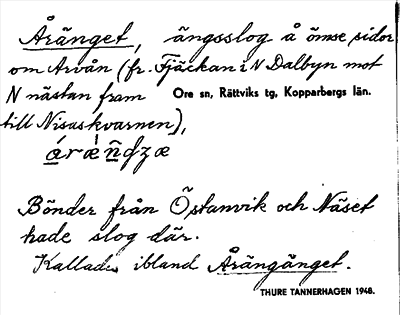 Åränget, ängsslog å ömse sidor
om Arvån (fr. Fjäckan i N Dalbyn mot
N nästan fram Ore sn, Rättviks tg, Kopparbergs län.
till Nisaskvarnen),
Bönder från Östanvik och Näset
hade slog där.
Kallades ibland Årängänget.
THURE TANNERHAGEN 1948.